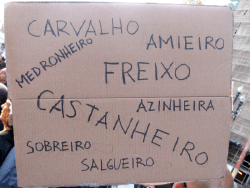 CARVALHO
AMIEIRO
MEDRONHEIRO
FREIXO
CASTANHEIRO
AZINHEIRA
SOBREIRO
SALGUEIRO